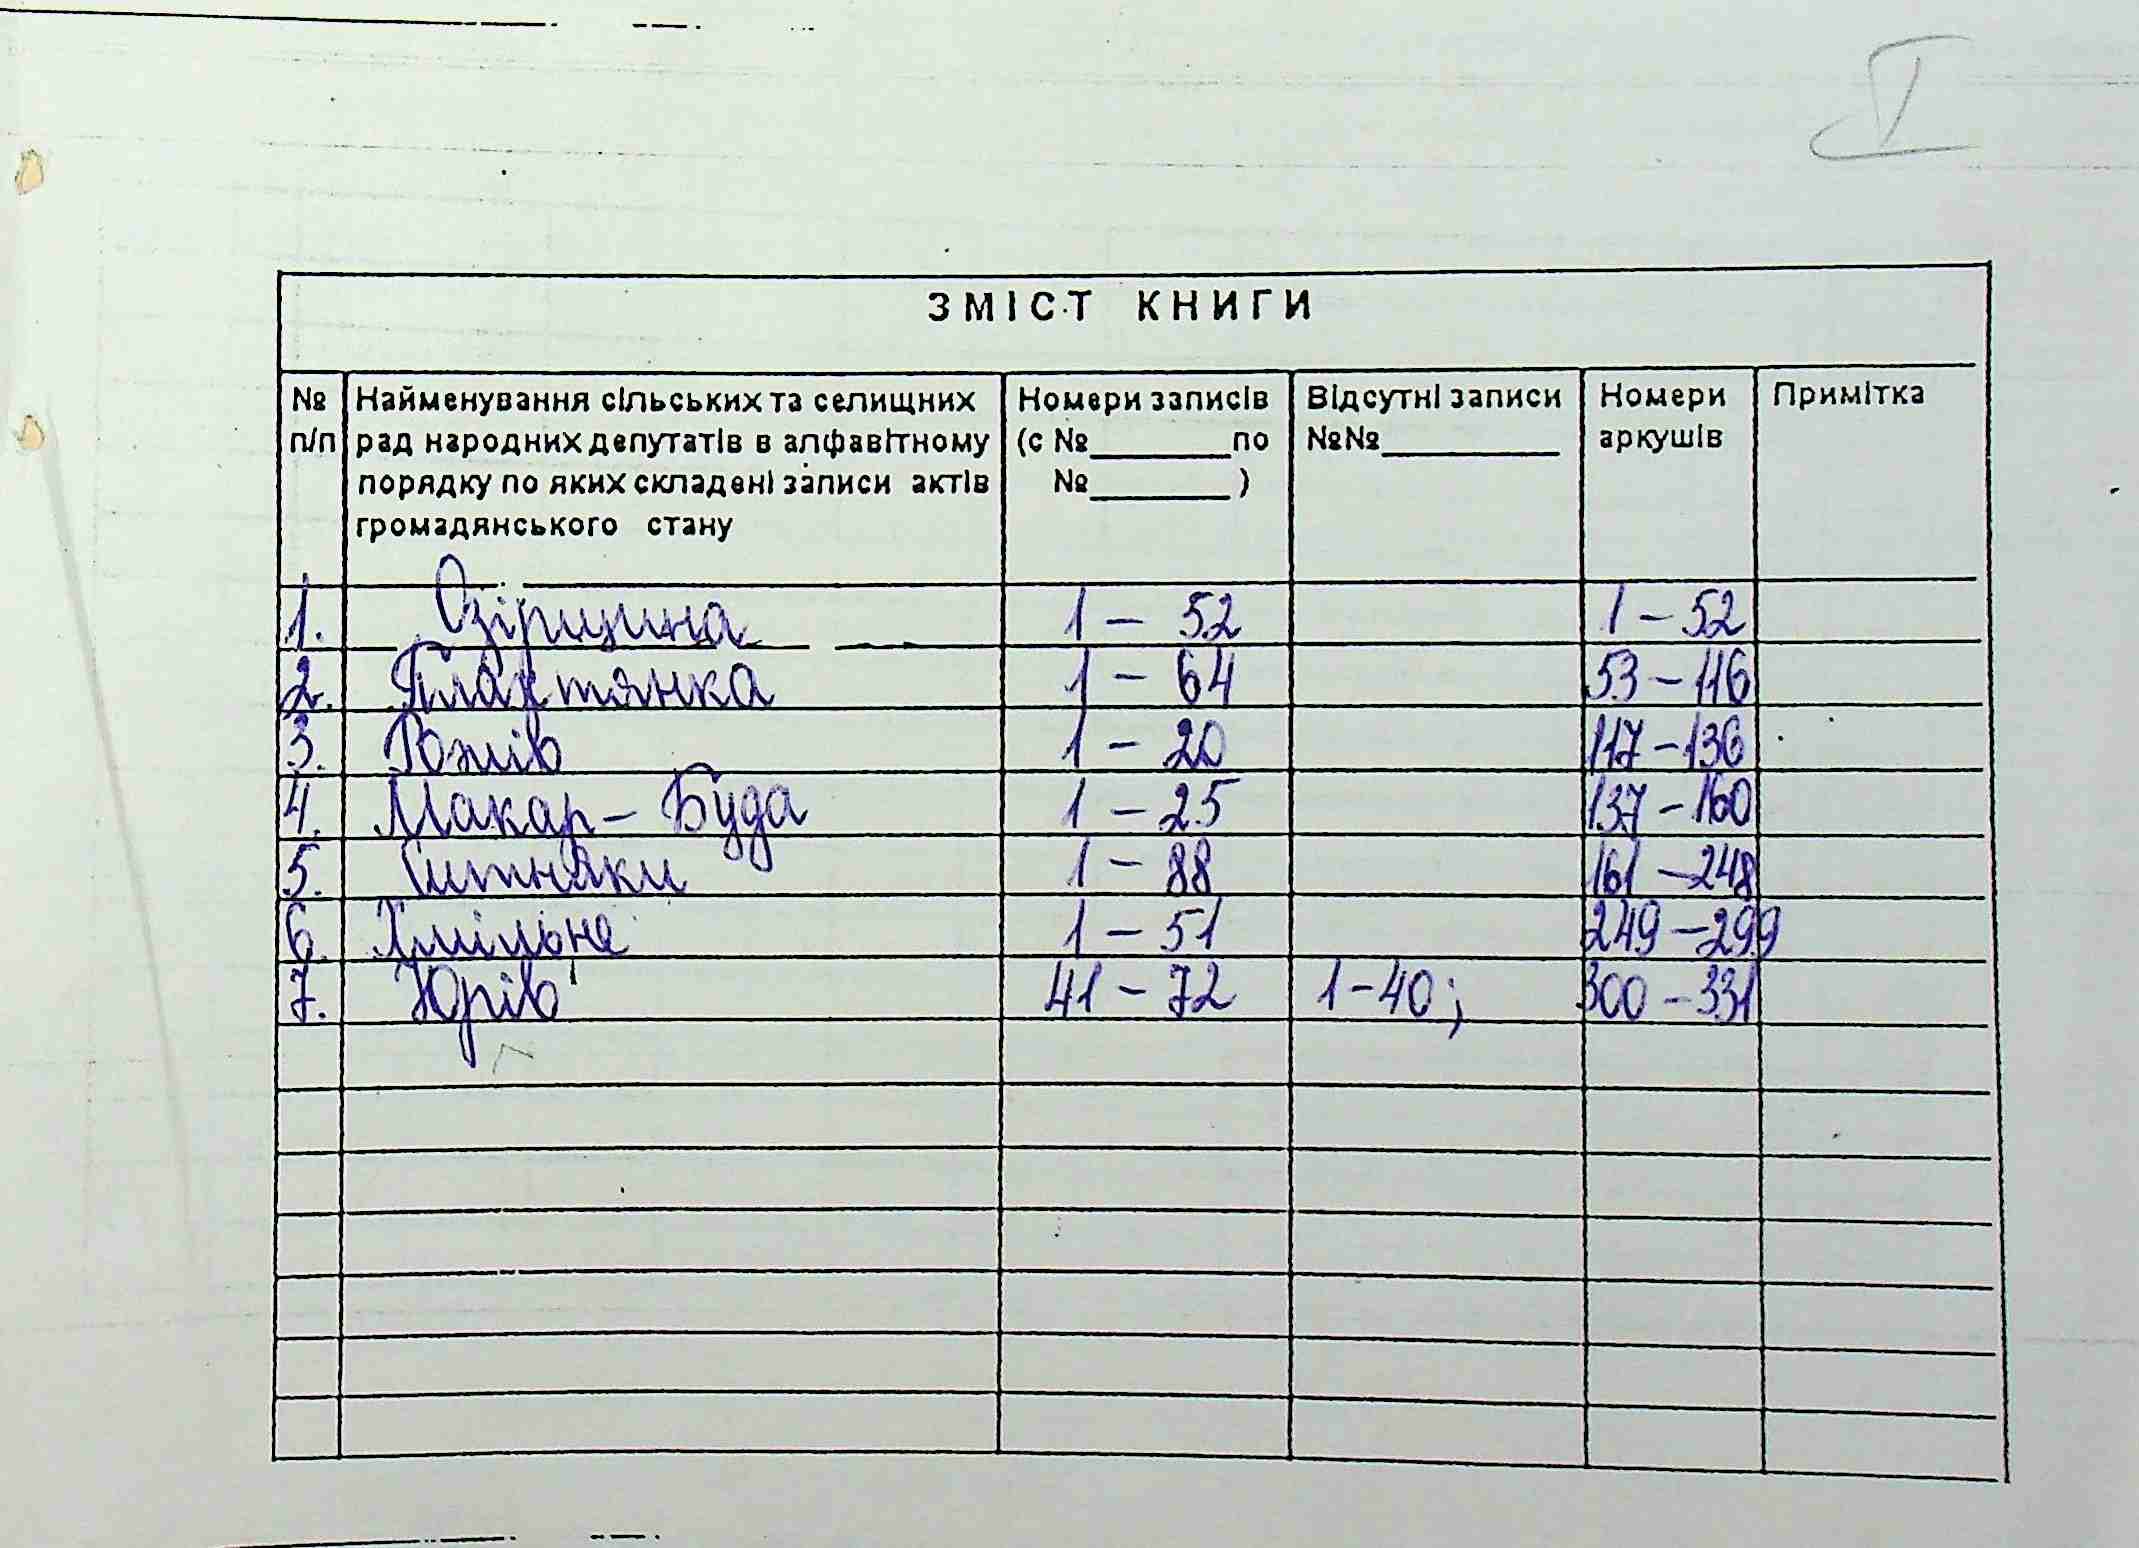 I
ЗМІСТ КНИГИ
№ п/п
Найменування сільських та селищних
рад народних депутатів в алфавітному
порядку по яких складені записи актів
громадянського стану
Номери записів
(с №________по
№________)
Відсутні записи
№№__________
Номери
аркушів
Примітка
1. Озірщина 1 – 52 1 – 52
2. Плахтянка 1 – 64 53 – 116
3. Рожів 1 – 20 117 – 136
4. Макар – Буда 1 – 25 137 – 160
5. Ситняки 1 – 88 161 – 248
6. Хмільна 1 – 51 249 – 299
7. Юрів 41 – 72 1 – 40; 300 – 331